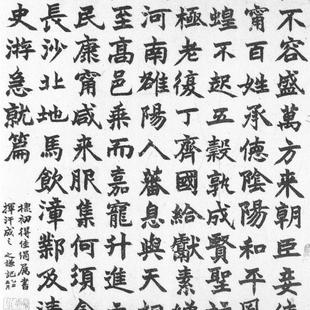 不容盛萬方來朝臣妾
甯百姓承德陰陽和平風
蝗不起五穀孰成賢聖
極老復丁齊國給獻素
河南雒陽人蕃息與天相
至高邑乘而嘉寵升進
民康甯咸來服集何須
長沙北地馬飲漳鄴及清
史游急就篇
初得佳絹屬書
揮汗成之之謙記